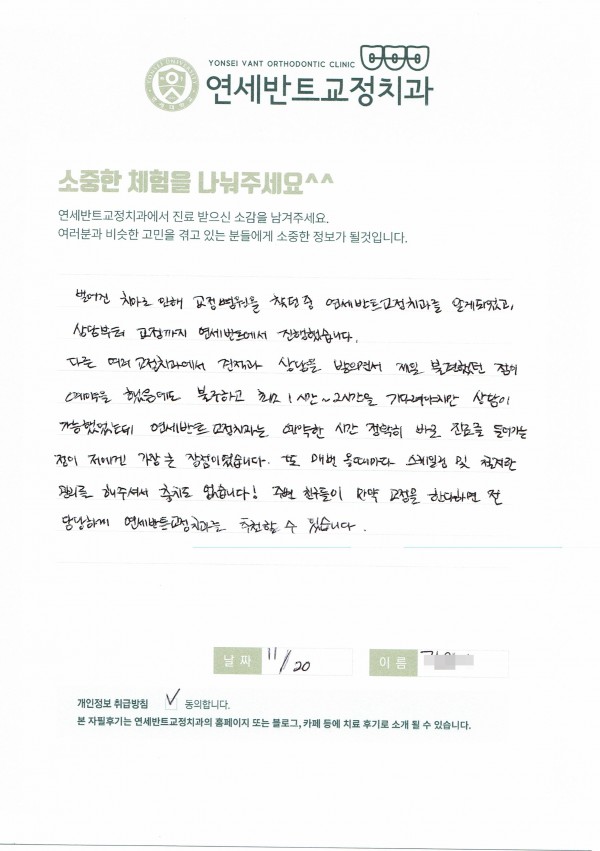 YONSEI VANT ORTHODONTIC CLINIC
연세반트교정치과
소중한 체험을 나눠주세요^^
연세반트교정치과에서 진료 받으신 소감을 남겨주세요.
여러분과 비슷한 고민을 겪고 있는 분들에게 소중한 정보가 될것입니다.
벌어진 치아로 인해 교정병원을 찾던중 연세반트교정치과를 알게되었고,
상담부터 교정까지 연세반트에서 진행했습니다.
다른 여러 교정치과에서 진료과 상담을 받으면서 제일 불편했던 점이
예약을 했음에도 불구하고 최소 1시간~2시간을 기다려야지만 상담이
가능했었는데 연세반트교정치과는 예약한 시간 정확히 바로 진료를 들어가는
점이 저에겐 가장 큰 장점이었습니다. 또 매번 올때마다 스케일링 및 철저한
관리를 해주셔서 충치도 없습니다! 주변 친구들이 만약 교정을 한다하면 전
당당하게 연세반트교정치과를 추천할 수 있습니다.
날짜 11/20 이름
개인정보 취급방침 ✓ 동의합니다.
본 자필후기는 연세반트교정치과의 홈페이지 또는 블로그, 카페 등에 치료 후기로 소개 될 수 있습니다.